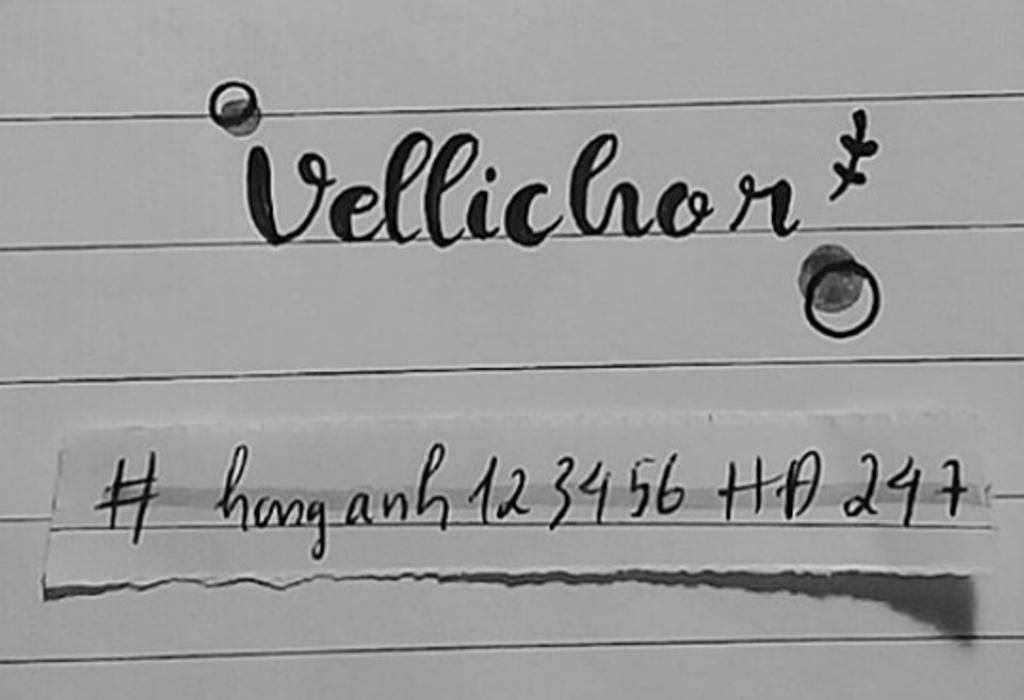 Vellichor
# honganh123456 HA 247